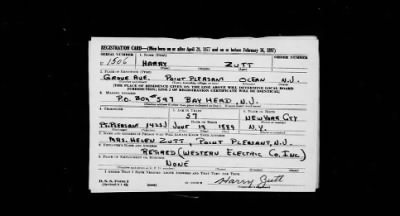 REGISTRATION CARD—(Men born on or after April 28, 1877 and on or before February 16, 1897)
SERIAL NUMBER 1. NAME (Print) ORDER NUMBER
U 1506 HARRY ZUTT
2. PLACE OF RESIDENCE (Print)
GROVE AVE. POINT PLEASANT OCEAN N.J.
(THE PLACE OF RESIDENCE GIVEN ON THE LINE ABOVE WILL DETERMINE LOCAL BOARD
JURISDICTION; LINE 2 OF REGISTRATION CERTIFICATE WILL BE IDENTICAL)
3. MAILING ADDRESS
P.O. BOX #597 BAY HEAD, N.J.
4. TELEPHONE 5. AGE IN YEARS 6. PLACE OF BIRTH
57 NEW YORK CITY
DATE OF BIRTH
PT. PLEASANT 1422J JUNE 19, 1884 N.Y.
7. NAME AND ADDRESS OF PERSON WHO WILL ALWAYS KNOW YOUR ADDRESS
MRS. HELEN ZUTT, POINT PLEASANT, N.J.
8. EMPLOYER'S NAME AND ADDRESS
RETIRED (WESTERN ELECTRIC CO. INC.)
9. PLACE OF EMPLOYMENT OR BUSINESS
NONE
I AFFIRM THAT I HAVE VERIFIED ABOVE ANSWERS AND THAT THEY ARE TRUE.
D. S. S. Form 1
Harry Zutt